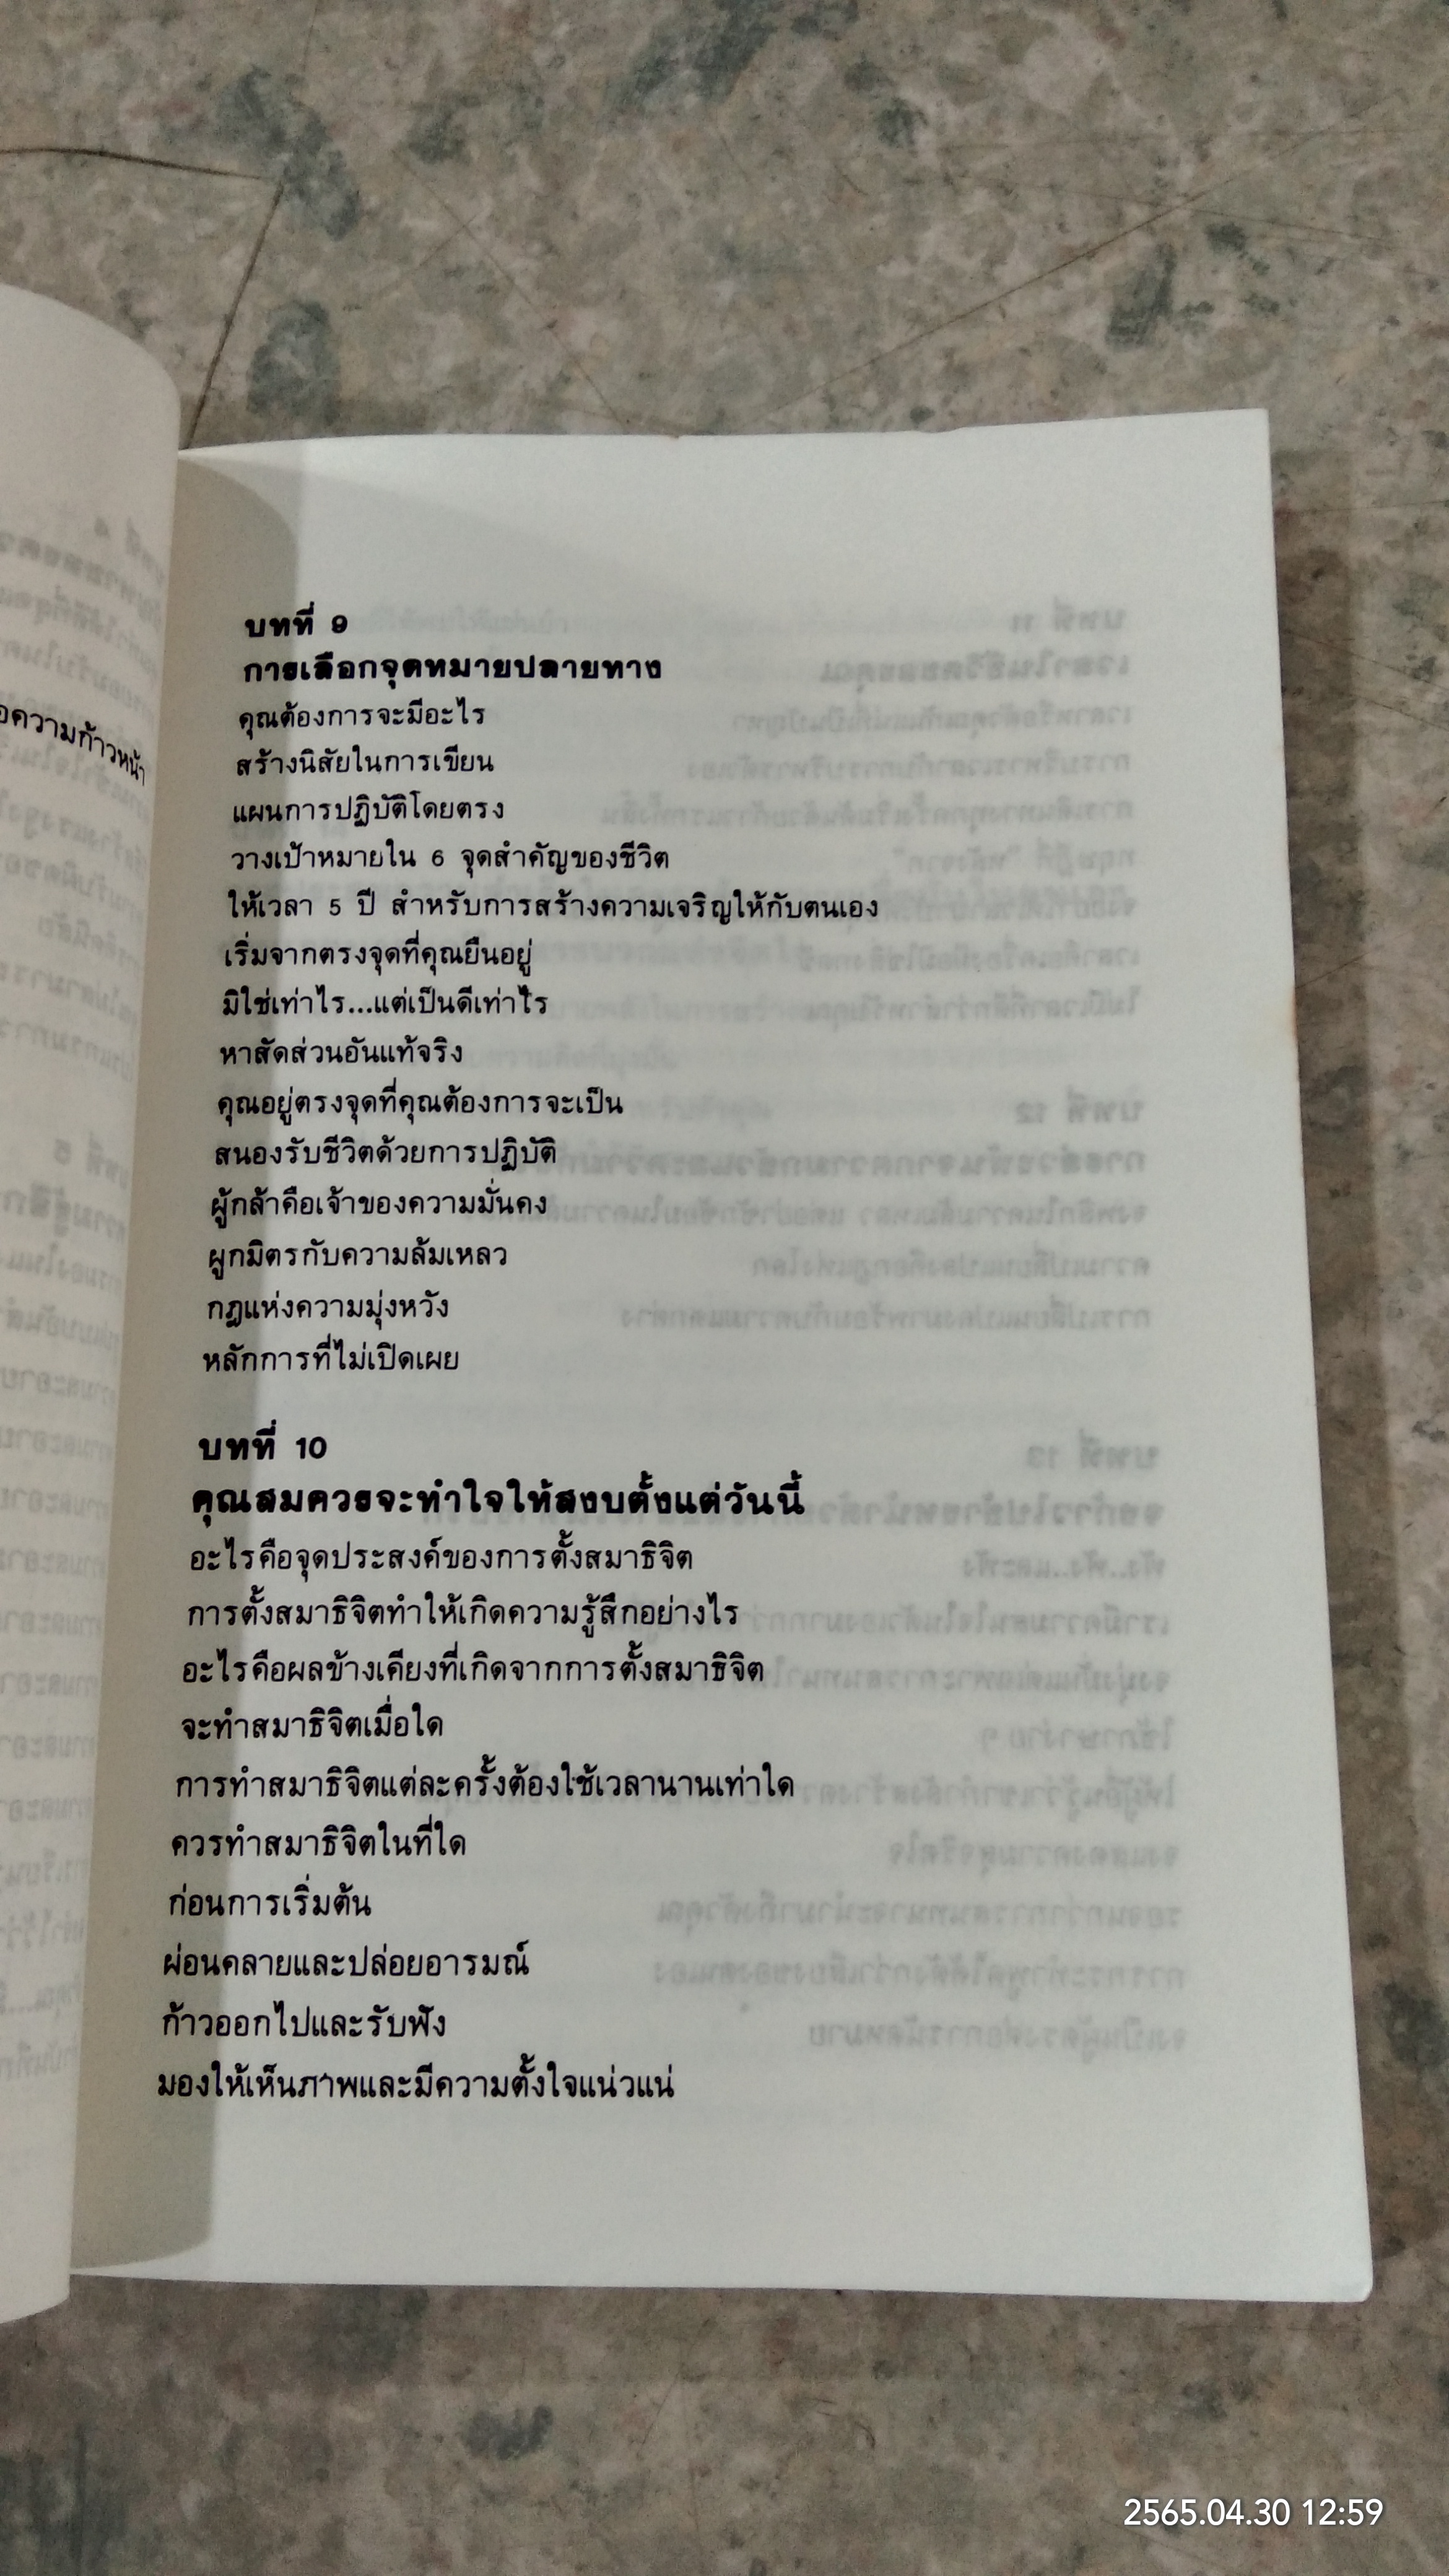 อความก้าวหน้า
บทที่ 9
การเลือกจุดหมายปลายทาง
คุณต้องการจะมีอะไร
สร้างนิสัยในการเขียน
แผนการปฏิบัติโดยตรง
วางเป้าหมายใน 6 จุดสำคัญของชีวิต
ให้เวลา 5 ปี สำหรับการสร้างความเจริญให้กับตนเอง
เริ่มจากตรงจุดที่คุณยืนอยู่
มิใช่เท่าไร...แต่เป็นดีเท่าไร
หาสัดส่วนอันแท้จริง
คุณอยู่ตรงจุดที่คุณต้องการจะเป็น
สนองรับชีวิตด้วยการปฏิบัติ
ผู้กล้าคือเจ้าของความมั่นคง
ผูกมิตรกับความล้มเหลว
กฎแห่งความมุ่งหวัง
หลักการที่ไม่เปิดเผย
บทที่ 10
คุณสมควรจะทำใจให้สงบตั้งแต่วันนี้
อะไรคือจุดประสงค์ของการตั้งสมาธิจิต
การตั้งสมาธิจิตทำให้เกิดความรู้สึกอย่างไร
อะไรคือผลข้างเคียงที่เกิดจากการตั้งสมาธิจิต
จะทำสมาธิจิตเมื่อใด
การทำสมาธิจิตแต่ละครั้งต้องใช้เวลานานเท่าใด
ควรทำสมาธิจิตในที่ใด
ก่อนการเริ่มต้น
ผ่อนคลายและปล่อยอารมณ์
ก้าวออกไปและรับฟัง
มองให้เห็นภาพและมีความตั้งใจแน่วแน่
2565.04.30 12:59